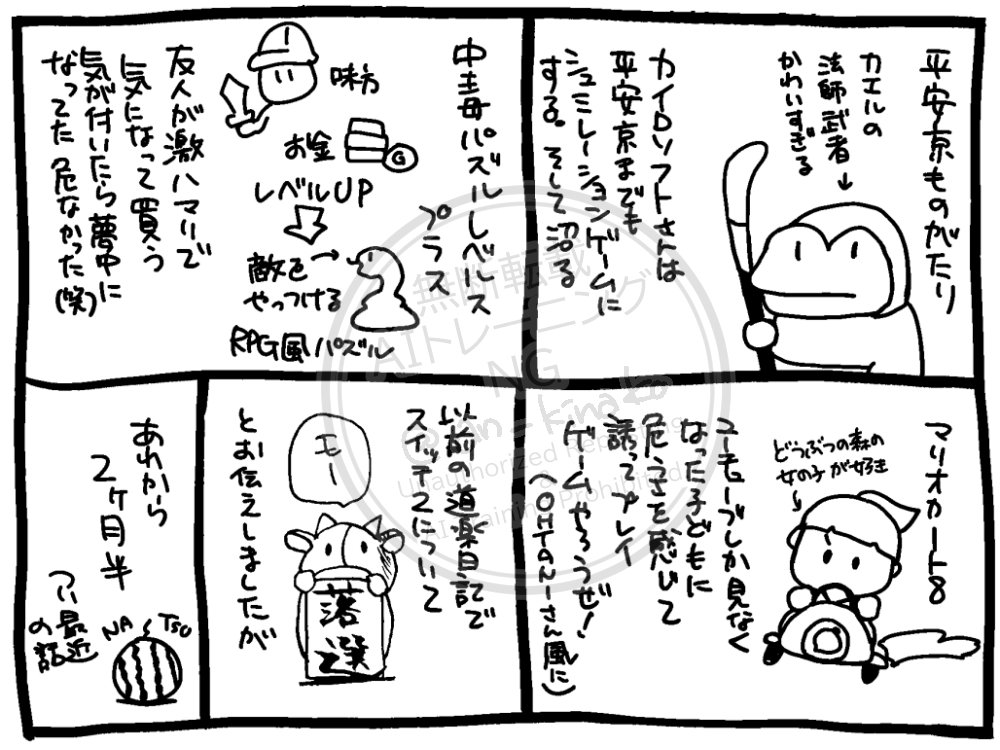 平安京ものがたり
カエルの
法師武者→
かわいすぎる
カイロソフトさんは
平安京までも
シュミレーションゲームに
する。そして沼る
中毒パズルレベルス
プラス
味方
お金
G
レベルUP
敵を→
やっつける
RPG風パズル
友人が激ハマりで
気になって買う
気が付いたら夢中に
なってた 危なかった(笑)
マリオカート8
どうぶつの森の
女の子が好き
ユーモーブしか見なく
なった子どもに
危うさを感じて
誘ってプレイ
ゲームやろうぜ!
(OHTANIさん風に)
以前の道楽日記で
スイッチ2について
とお伝えしましたが
モー
落選
あれから
2ヶ月半
つい最近
の話
NATSU
無断転載
AIトレーニング
NG
Unauthorized Reposting
AI Training Prohibited